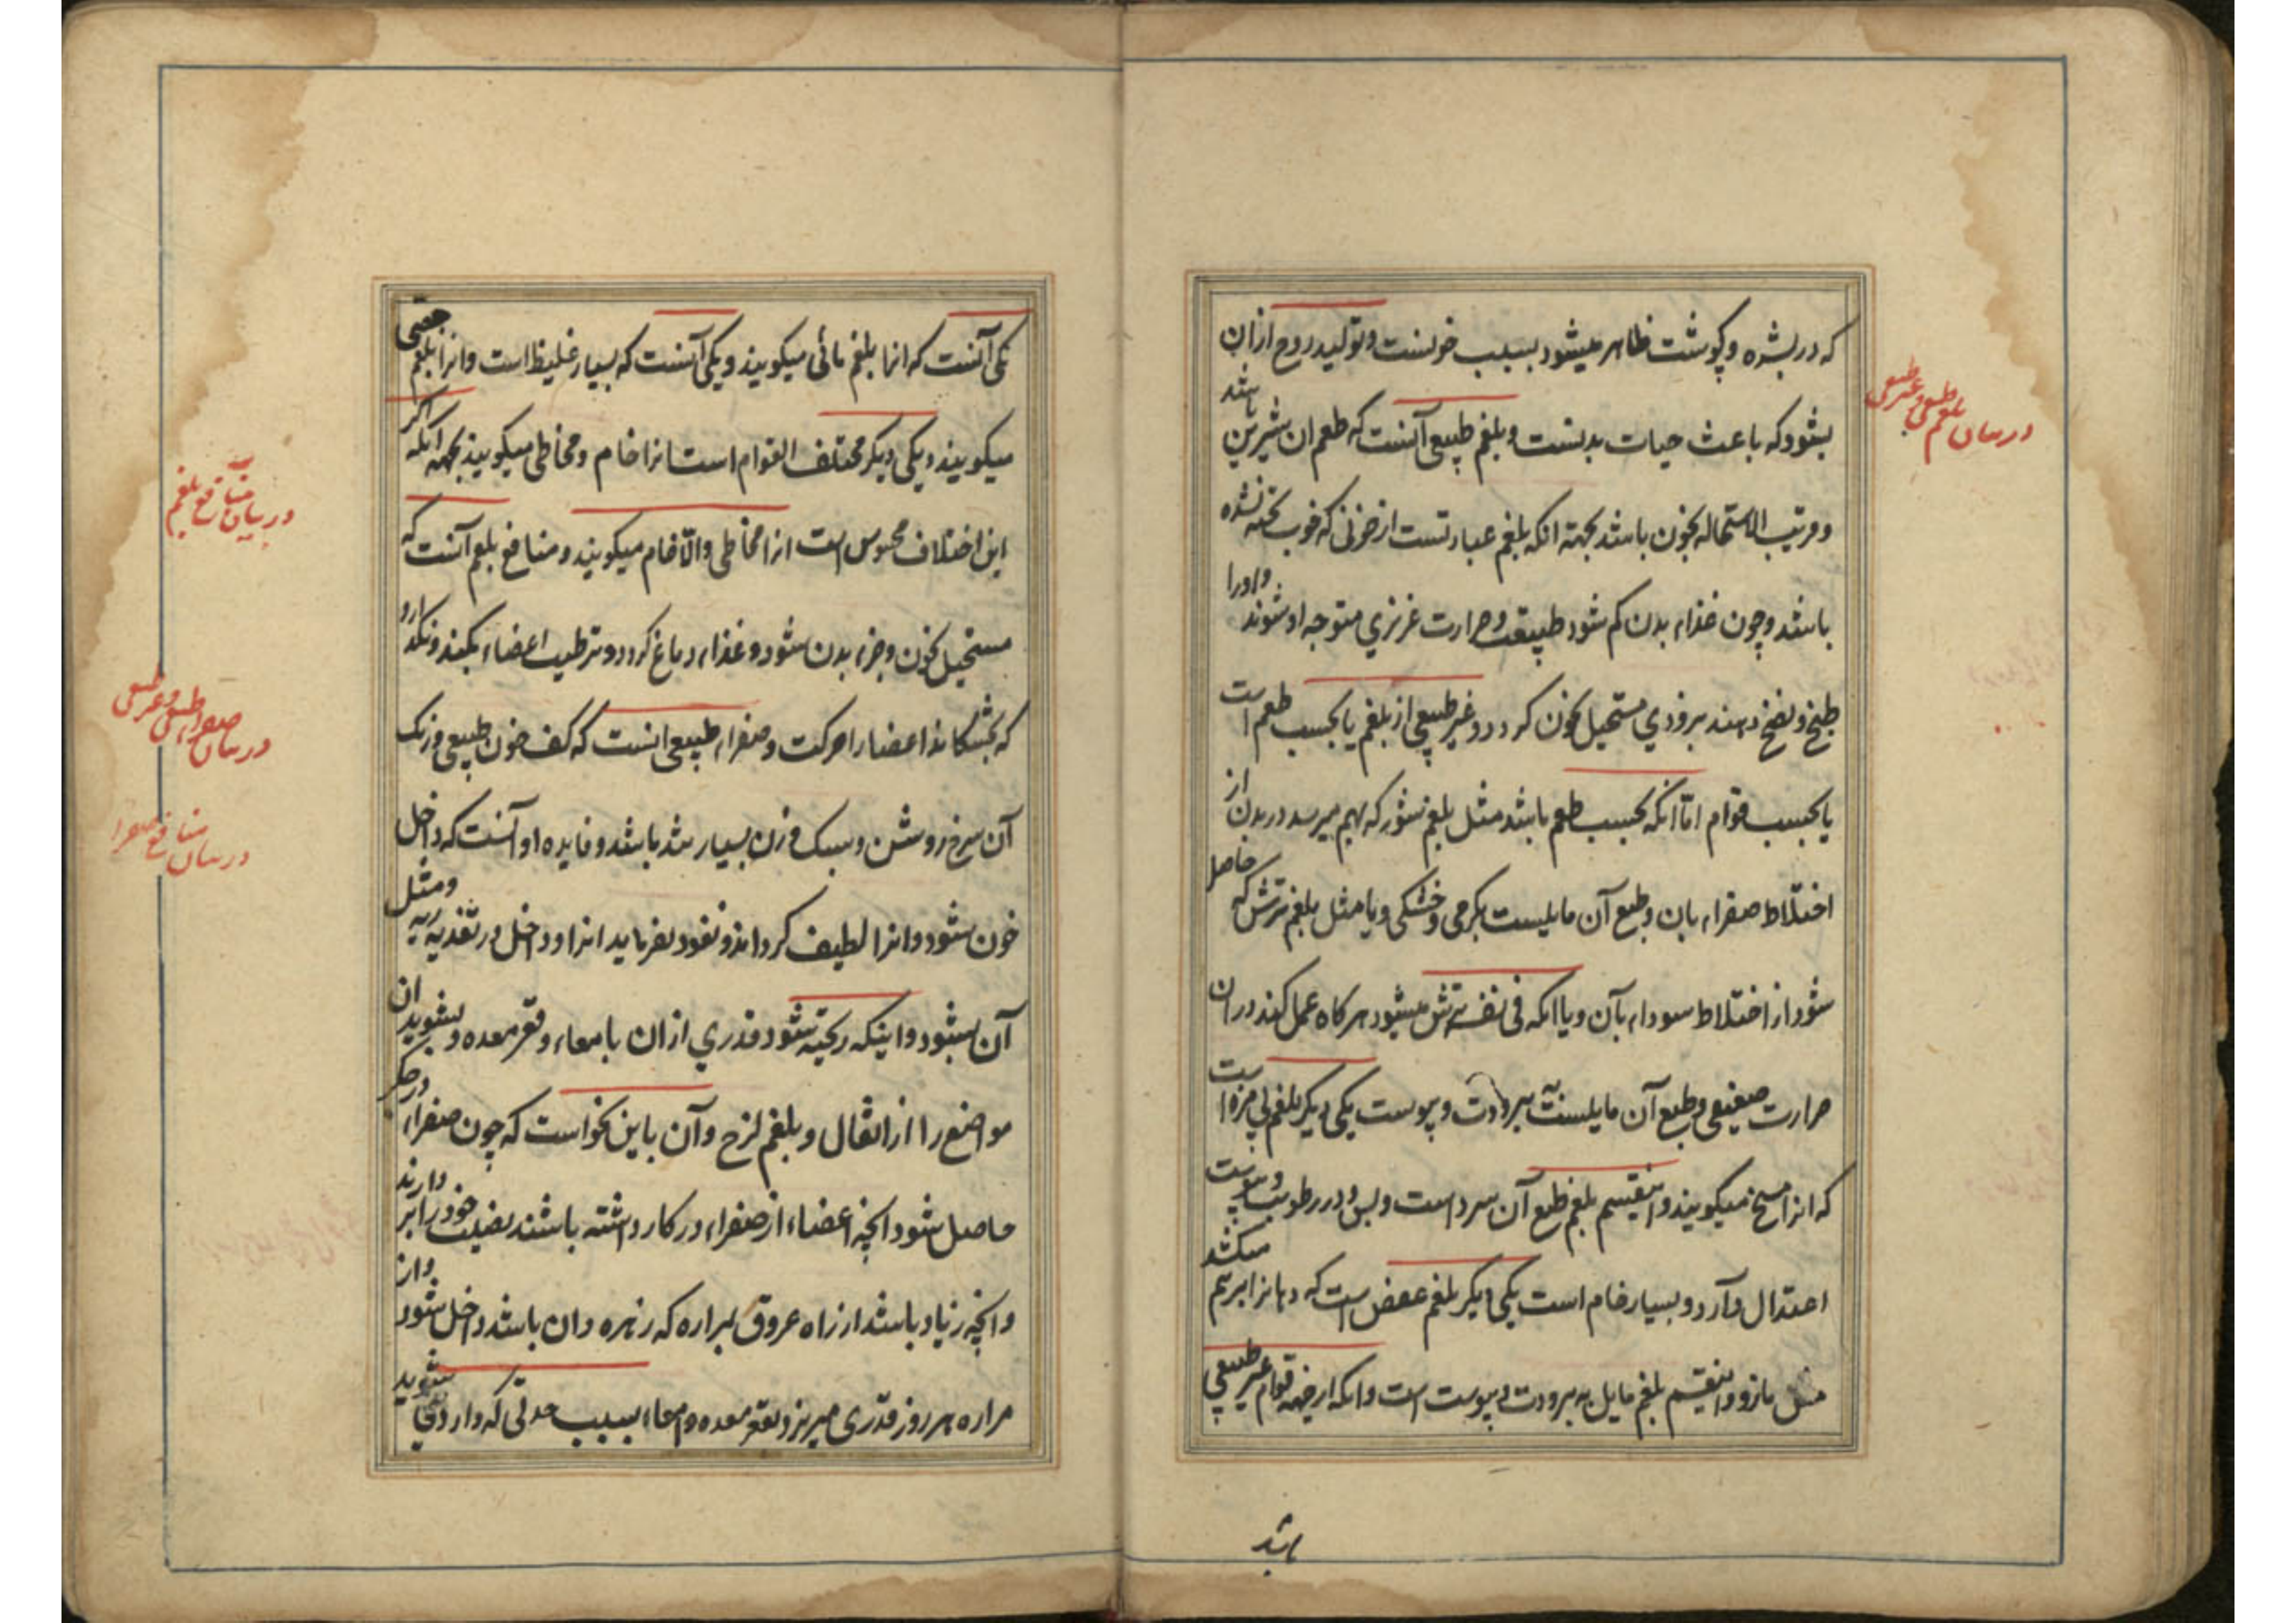 که در بشره و گوشت ظاهر میشود بسبب خونست و تولید روح ازان
بشود که باعث حیات بدنست و بلغم طبیعی آنست که طعم ان شیرین باشد
و قریب الاستحاله بخون باشد بجهة انکه بلغم عبارتست از خونی که خوب پخته نشده
باشد و چون غذاء بدن کم شود طبیعت و حرارت غریزی متوجه او شوند و او را
طبخ و نضج دهند بزودی مستحیل بخون کردد و غیر طبیعی از بلغم یا بحسب طعم است
یا بحسب قوام امّا انکه بحسب طعم باشد مثل بلغم شور که بهم میرسد در بدن از
اختلاط صفراء بان و طبع آن مایلست بکرمی و خشکی و یا مثل بلغم ترش که حاصل
شود از اختلاط سوداء بآن و یا انکه فی نفسه ترش میشود هرکاه عمل کند دران
حرارت ضعیفی و طبع آن مایلست ببرودت و یبوست یکی دیکر بلغم بی مزه است
که انرا مسیخ میکویند و اینقسم بلغم طبع آن سرد است و بس و در رطوبت و یبوست
اعتدال دارد و بسیار خام است یکی دیکر بلغم عفص است که دهانرا بهم میکشد
مثل مازو و اینقسم بلغم مایل به برودت و یبوست است و انکه از جهة قوام غیر طبیعی
باشد
در بیان بلغم طبیعی و غیر طبیعی
یکی آنست که انرا بلغم مائی میکویند و یکی آنست که بسیار غلیظ است و انرا بلغم جصی
میکویند و یکی دیکر مختلف القوام است انرا خام و مخاطی میکویند بجهة انکه اکر
این اختلاف محسوس است انرا مخاطی و الّا خام میکویند و منافع بلغم آنست که
مستحیل بخون و جزء بدن شود و غذاء دماغ کردد و ترطیب اعضاء بکند و نکذارد
که بخشکاند اعضا را حرکت و صفراء طبیعی انست که کف خون طبیعی و رنک
آن سرخ روشن و سبک وزن بسیار تند باشد و فایده او آنست که داخل
خون شود و انرا لطیف کرداند و نفوذ بفرماید انرا و داخل در تغذیه ریه و مثل
آن بشود و اینکه ریخته شود قدری ازان بامعاء و قعر معده و بشوید ان
مواضع را از اثقال و بلغم لزج و آن باین نحو است که چون صفراء در جکر
حاصل شود انچه اعضاء از صفراء در کار داشته باشند نصیب خود را بر دارند
و انچه زیاد باشد از راه عروق بمراره که زهره دان باشد داخل شود و از
مراره هر روز قدری میریزد بقعر معده و امعاء بسبب حدتی که دارد می شوید
در بیان منافع بلغم
در بیان صفراء طبیعی و غیر طبیعی
در بیان منافع صفرا